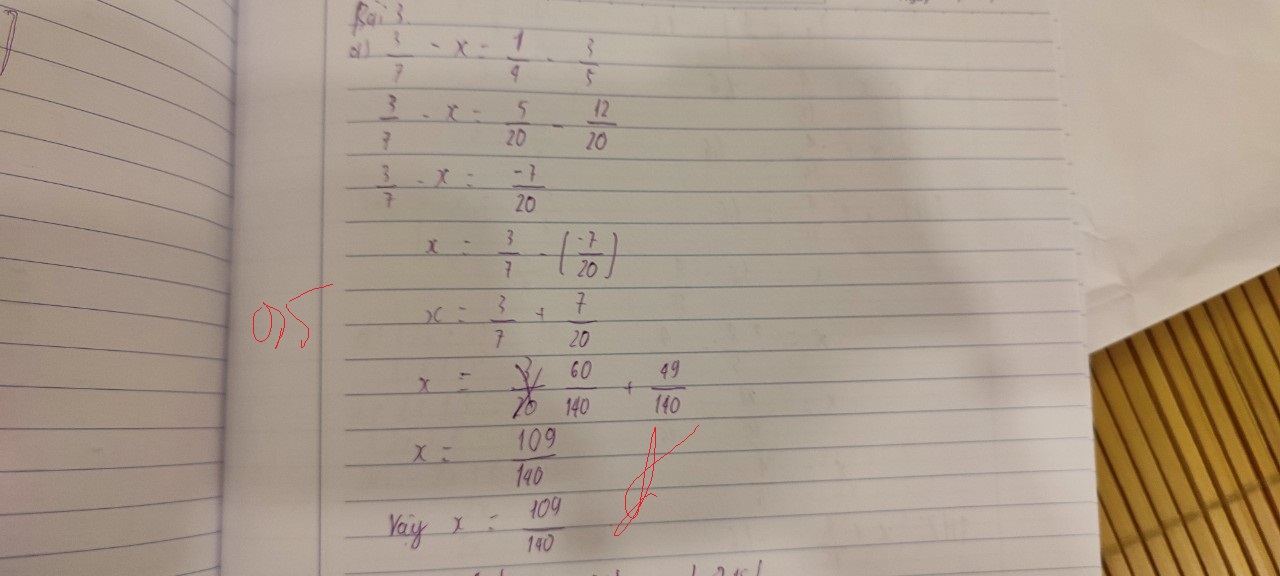 Bài 3.
a) 3/7 - x = 1/4 - 3/5
3/7 - x = 5/20 - 12/20
3/7 - x = -7/20
x = 3/7 - (-7/20)
0,5
x = 3/7 + 7/20
x = 3/20 60/140 + 49/140
x = 109/140
đ
Vậy x = 109/140